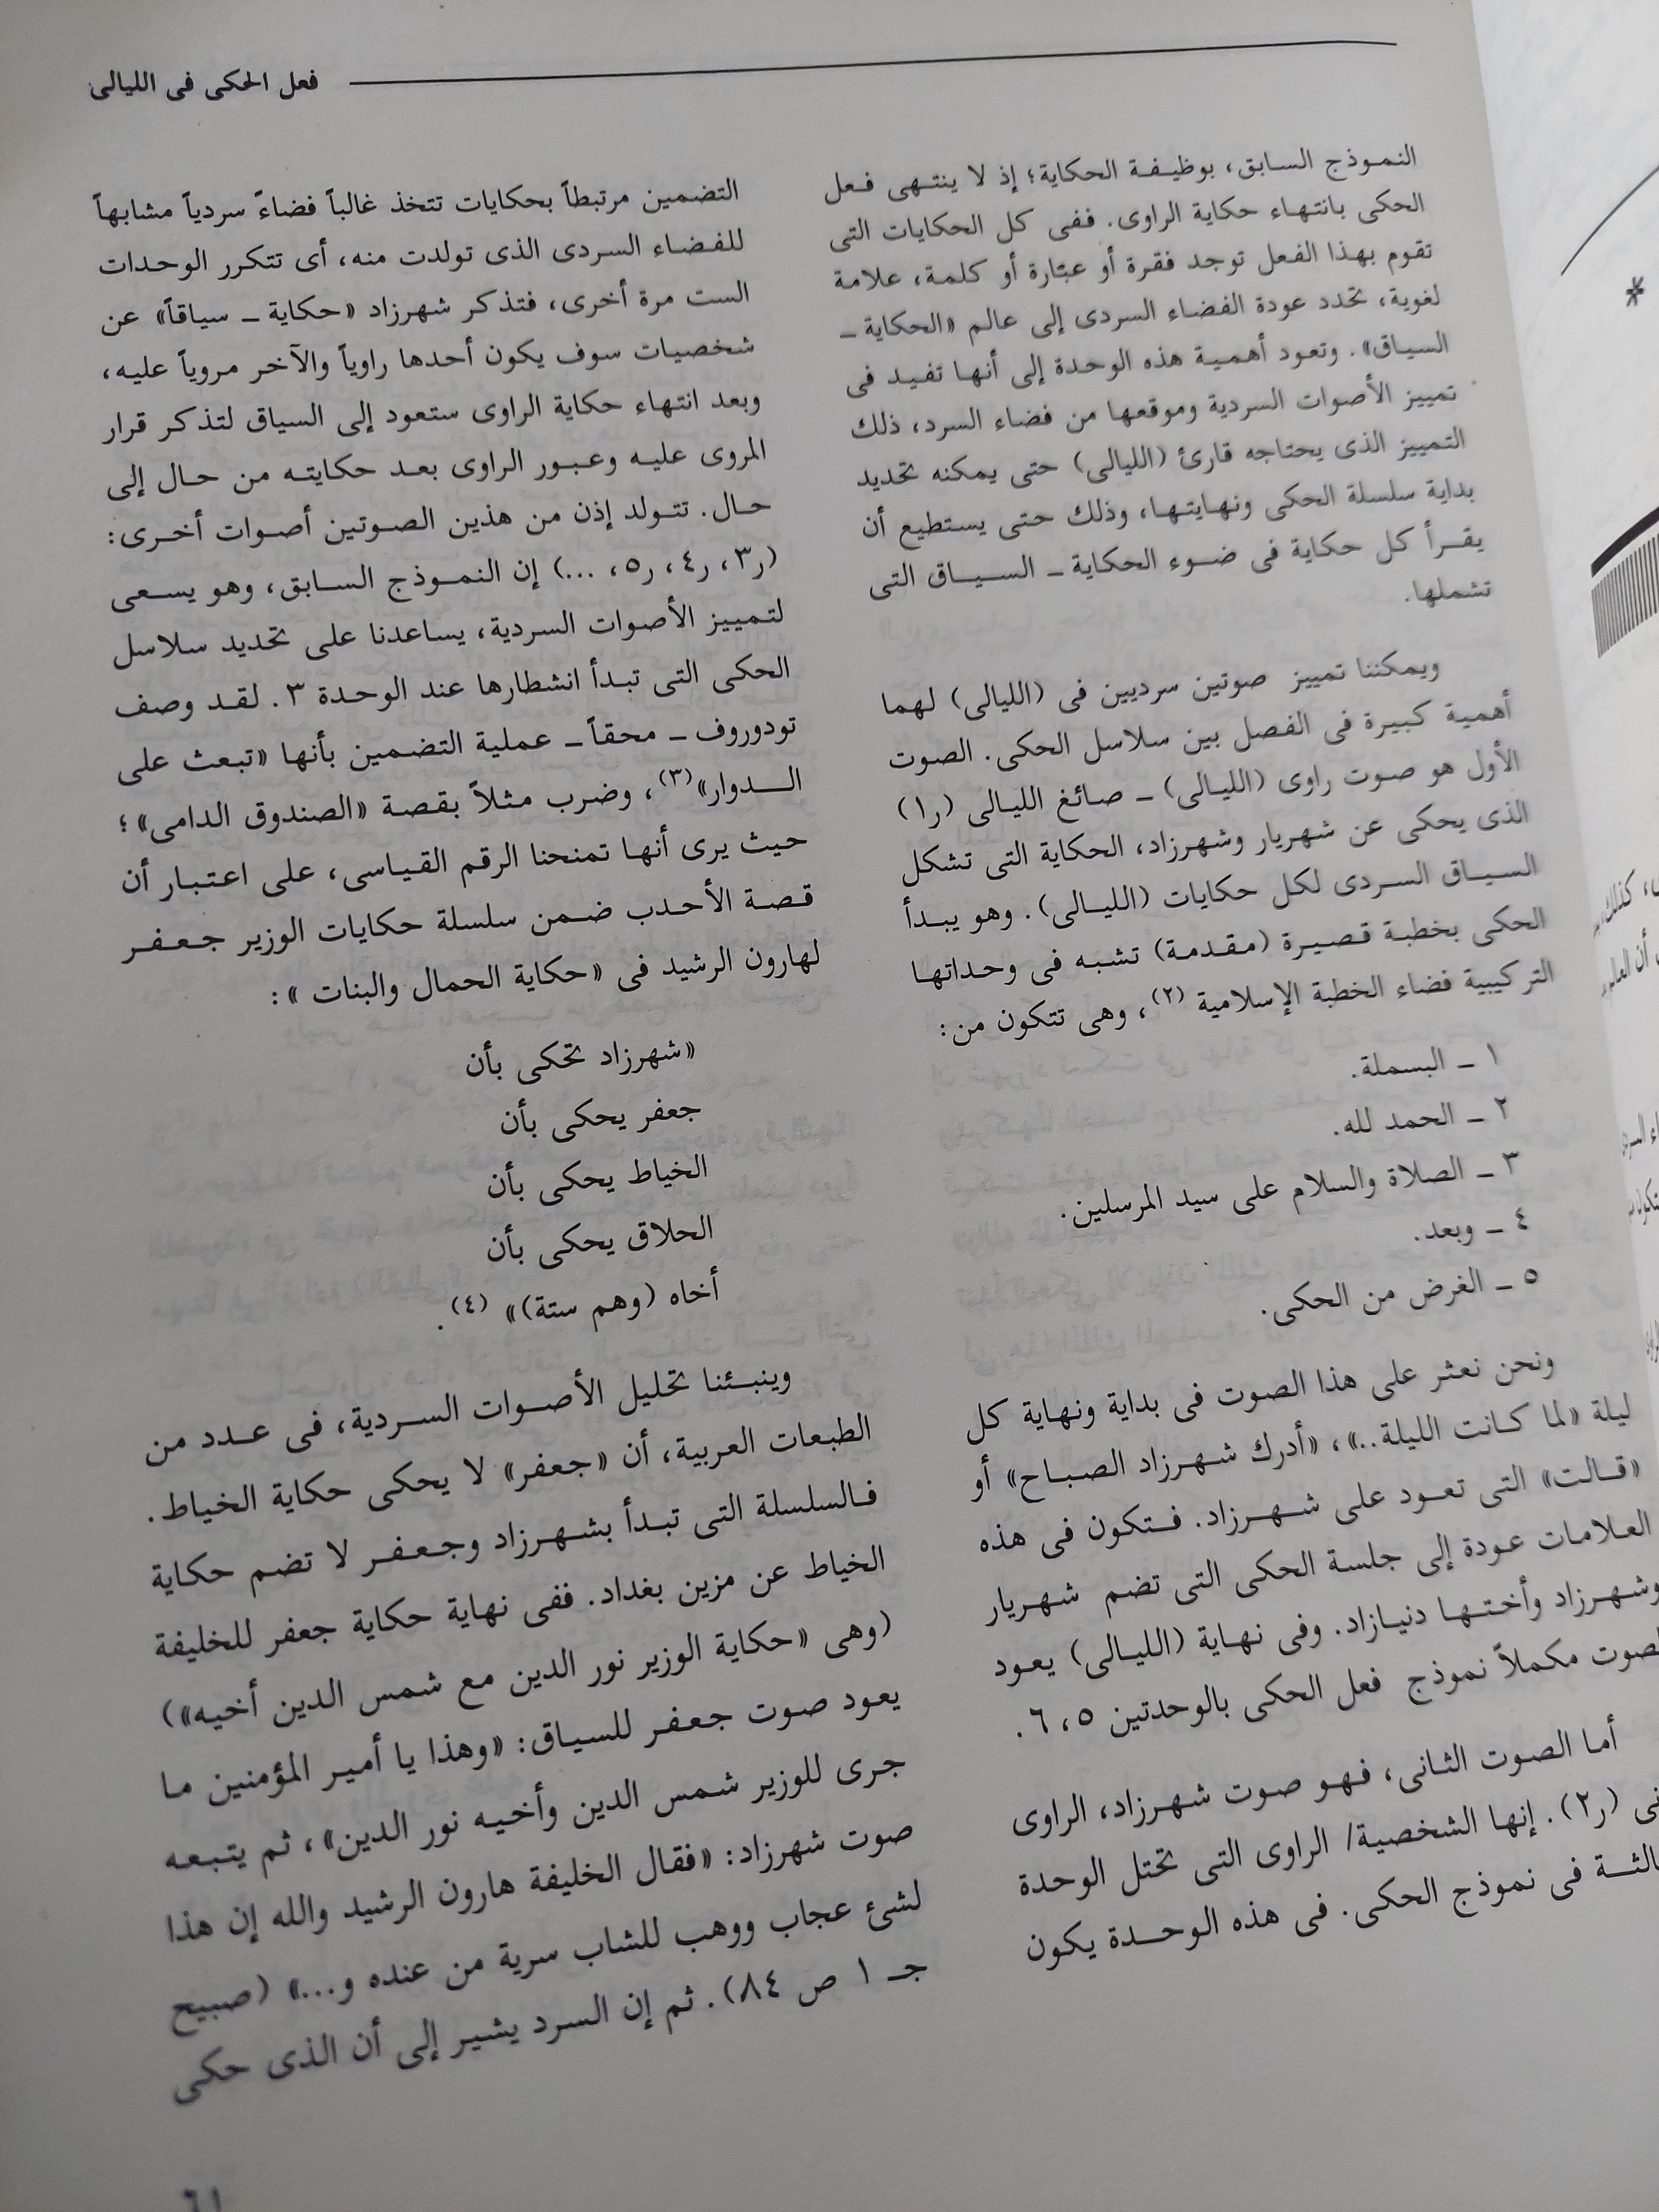 فعل الحكى فى الليالى
النموذج السابق، بوظيفة الحكاية؛ إذ لا ينتهى فعل
الحكى بانتهاء حكاية الراوى. ففى كل الحكايات التى
تقوم بهذا الفعل توجد فقرة أو عبارة أو كلمة، علامة
لغوية، تحدد عودة الفضاء السردى إلى عالم «الحكاية ـ
السياق». وتعود أهمية هذه الوحدة إلى أنها تفيد فى
تمييز الأصوات السردية وموقعها من فضاء السرد، ذلك
التمييز الذى يحتاجه قارئ (الليالى) حتى يمكنه تحديد
بداية سلسلة الحكى ونهايتها، وذلك حتى يستطيع أن
يقرأ كل حكاية فى ضوء الحكاية ـ السياق التى
تشملها.
ويمكننا تمييز صوتين سرديين فى (الليالى) لهما
أهمية كبيرة فى الفصل بين سلاسل الحكى. الصوت
الأول هو صوت راوى (الليالى) ـ صائغ الليالى (ر١)
الذى يحكى عن شهريار وشهرزاد، الحكاية التى تشكل
السياق السردى لكل حكايات (الليالى). وهو يبدأ
الحكى بخطبة قصيرة (مقدمة) تشبه فى وحداتها
التركيبية فضاء الخطبة الإسلامية (٢)، وهى تتكون من:
١ ـ البسملة.
٢ ـ الحمد لله.
٣ ـ الصلاة والسلام على سيد المرسلين.
٤ ـ وبعد.
٥ ـ الغرض من الحكى.
ونحن نعثر على هذا الصوت فى بداية ونهاية كل
ليلة «لما كانت الليلة..»، «أدرك شهرزاد الصباح» أو
«قالت» التى تعود على شهرزاد. فتكون فى هذه
العلامات عودة إلى جلسة الحكى التى تضم شهريار
وشهرزاد وأختها دنيازاد. وفى نهاية (الليالى) يعود
مكملاً نموذج فعل الحكى بالوحدتين ٥، ٦.
أما الصوت الثانى، فهو صوت شهرزاد، الراوى
(ر٢). إنها الشخصية/ الراوى التى تحتل الوحدة
فى نموذج الحكى. فى هذه الوحدة يكون
التضمين مرتبطاً بحكايات تتخذ غالباً فضاءً سردياً مشابهاً
للفضاء السردى الذى تولدت منه، أى تتكرر الوحدات
الست مرة أخرى، فتذكر شهرزاد «حكاية ـ سياقاً» عن
شخصيات سوف يكون أحدها راوياً والآخر مروياً عليه،
وبعد انتهاء حكاية الراوى ستعود إلى السياق لتذكر قرار
المروى عليه وعبور الراوى بعد حكايته من حال إلى
حال. تتولد إذن من هذين الصوتين أصوات أخرى:
(ر٣، ر٤، ر٥، ...) إن النموذج السابق، وهو يسعى
لتمييز الأصوات السردية، يساعدنا على تحديد سلاسل
الحكى التى تبدأ انشطارها عند الوحدة ٣. لقد وصف
تودوروف ـ محقاً ـ عملية التضمين بأنها «تبعث على
الدوار»(٣)، وضرب مثلاً بقصة «الصندوق الدامى»؛
حيث يرى أنها تمنحنا الرقم القياسى، على اعتبار أن
قصة الأحدب ضمن سلسلة حكايات الوزير جعفر
لهارون الرشيد فى «حكاية الحمال والبنات »:
«شهرزاد تحكى بأن
جعفر يحكى بأن
الخياط يحكى بأن
الحلاق يحكى بأن
أخاه (وهم ستة)» (٤).
وينبئنا تحليل الأصوات السردية، فى عدد من
الطبعات العربية، أن «جعفر» لا يحكى حكاية الخياط.
فالسلسلة التى تبدأ بشهرزاد وجعفر لا تضم حكاية
الخياط عن مزين بغداد. ففى نهاية حكاية جعفر للخليفة
(وهى «حكاية الوزير نور الدين مع شمس الدين أخيه»)
يعود صوت جعفر للسياق: «وهذا يا أمير المؤمنين ما
جرى للوزير شمس الدين وأخيه نور الدين»، ثم يتبعه
صوت شهرزاد: «فقال الخليفة هارون الرشيد والله إن هذا
لشئ عجاب ووهب للشاب سرية من عنده و...» (صبيح
جـ ١ ص ٨٤). ثم إن السرد يشير إلى أن الذى حكى
٦١